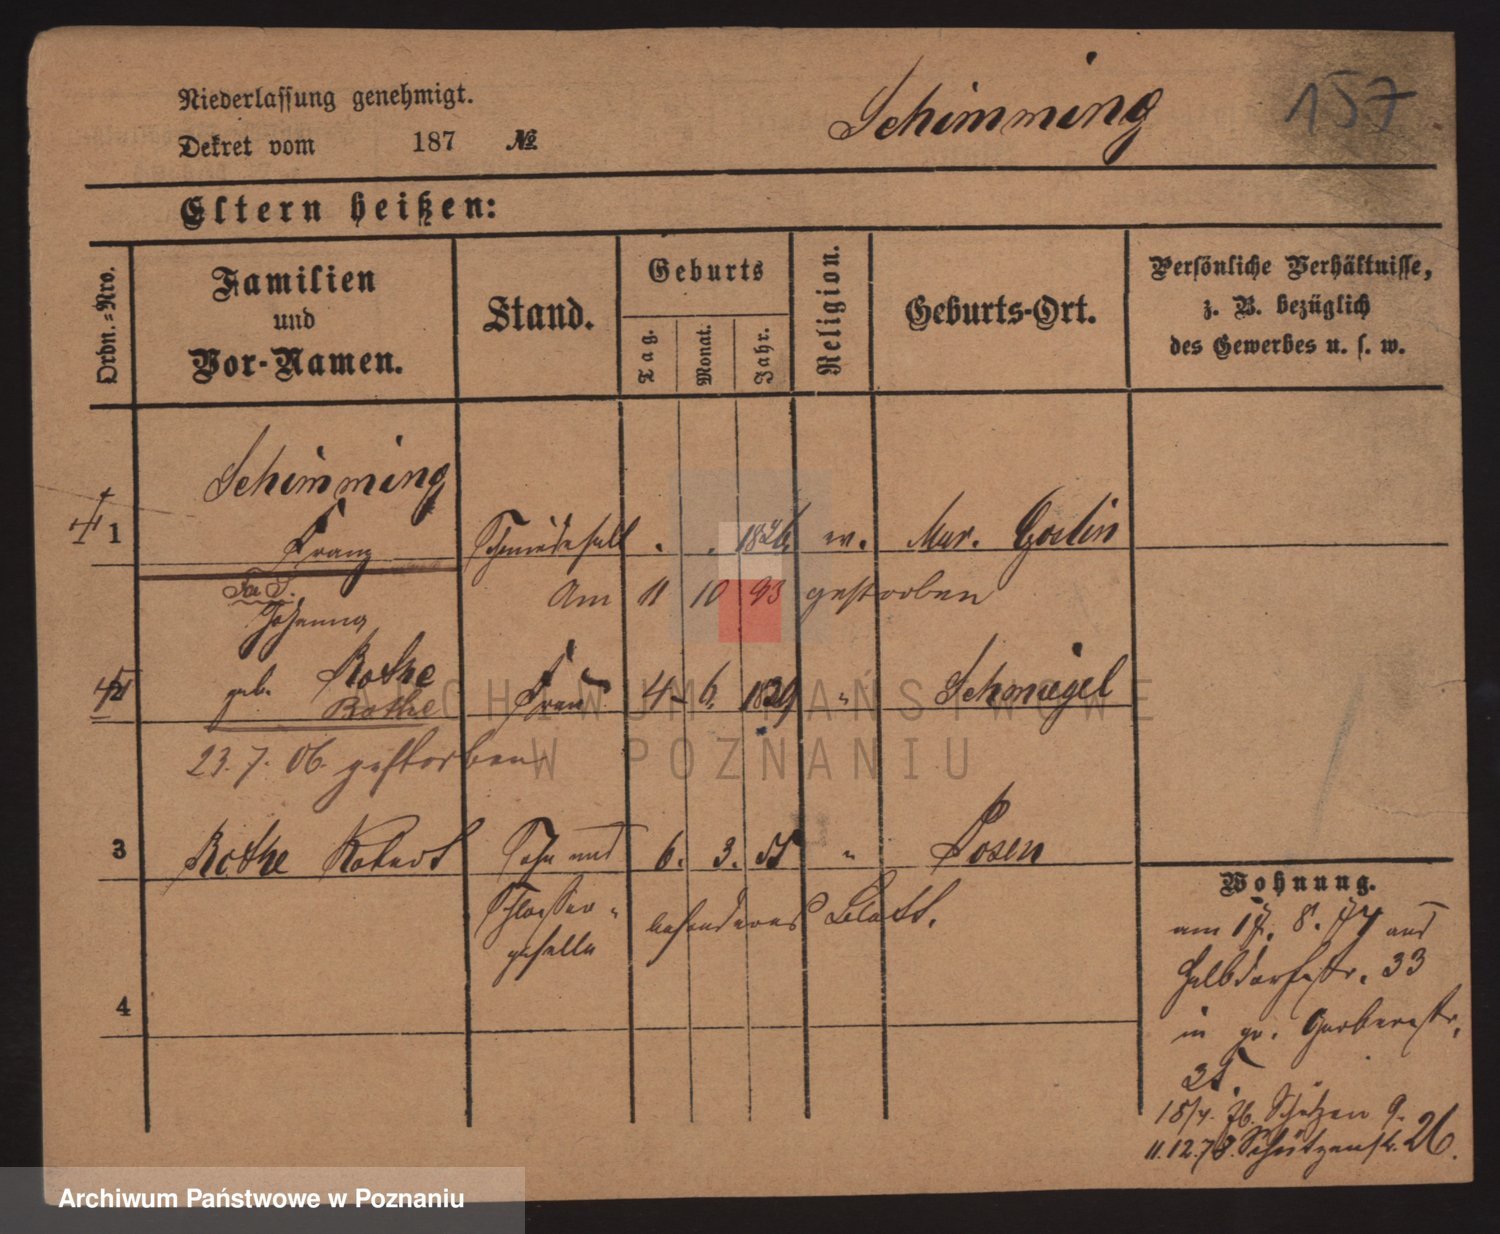 Niederlassung genehmigt.
Dekret vom 187 №
Schimming
157
Eltern heißen:
Ordn.-Nro.
Familien
und
Vor-Namen.
Stand.
Geburts
Tag.
Monat.
Jahr.
Religion.
Geburts-Ort.
Persönliche Verhältnisse,
z. B. bezüglich
des Gewerbes u. s. w.
Schimming
1 Franz 1826 Mur. Goslin
Am 11 10 93 gestorben
Johanna
geb. Rothe Frau 4 6. 1829 " Schmiegel
Rothe
23. 7. 06. gestorben
3 Rothe Robert Sohn und 6. 3. 55 " Posen
Schlosser-
geselle besonderes Blatt.
4
Wohnung.
am 17. 8. 77 aus
Halbdorfstr. 33
in gr. Gerberstr.
35.
Schützen 9.
11.12.78. Schützenstr. 26.
ARCHIWUM PAŃSTWOWE
W POZNANIU
Archiwum Państwowe w Poznaniu